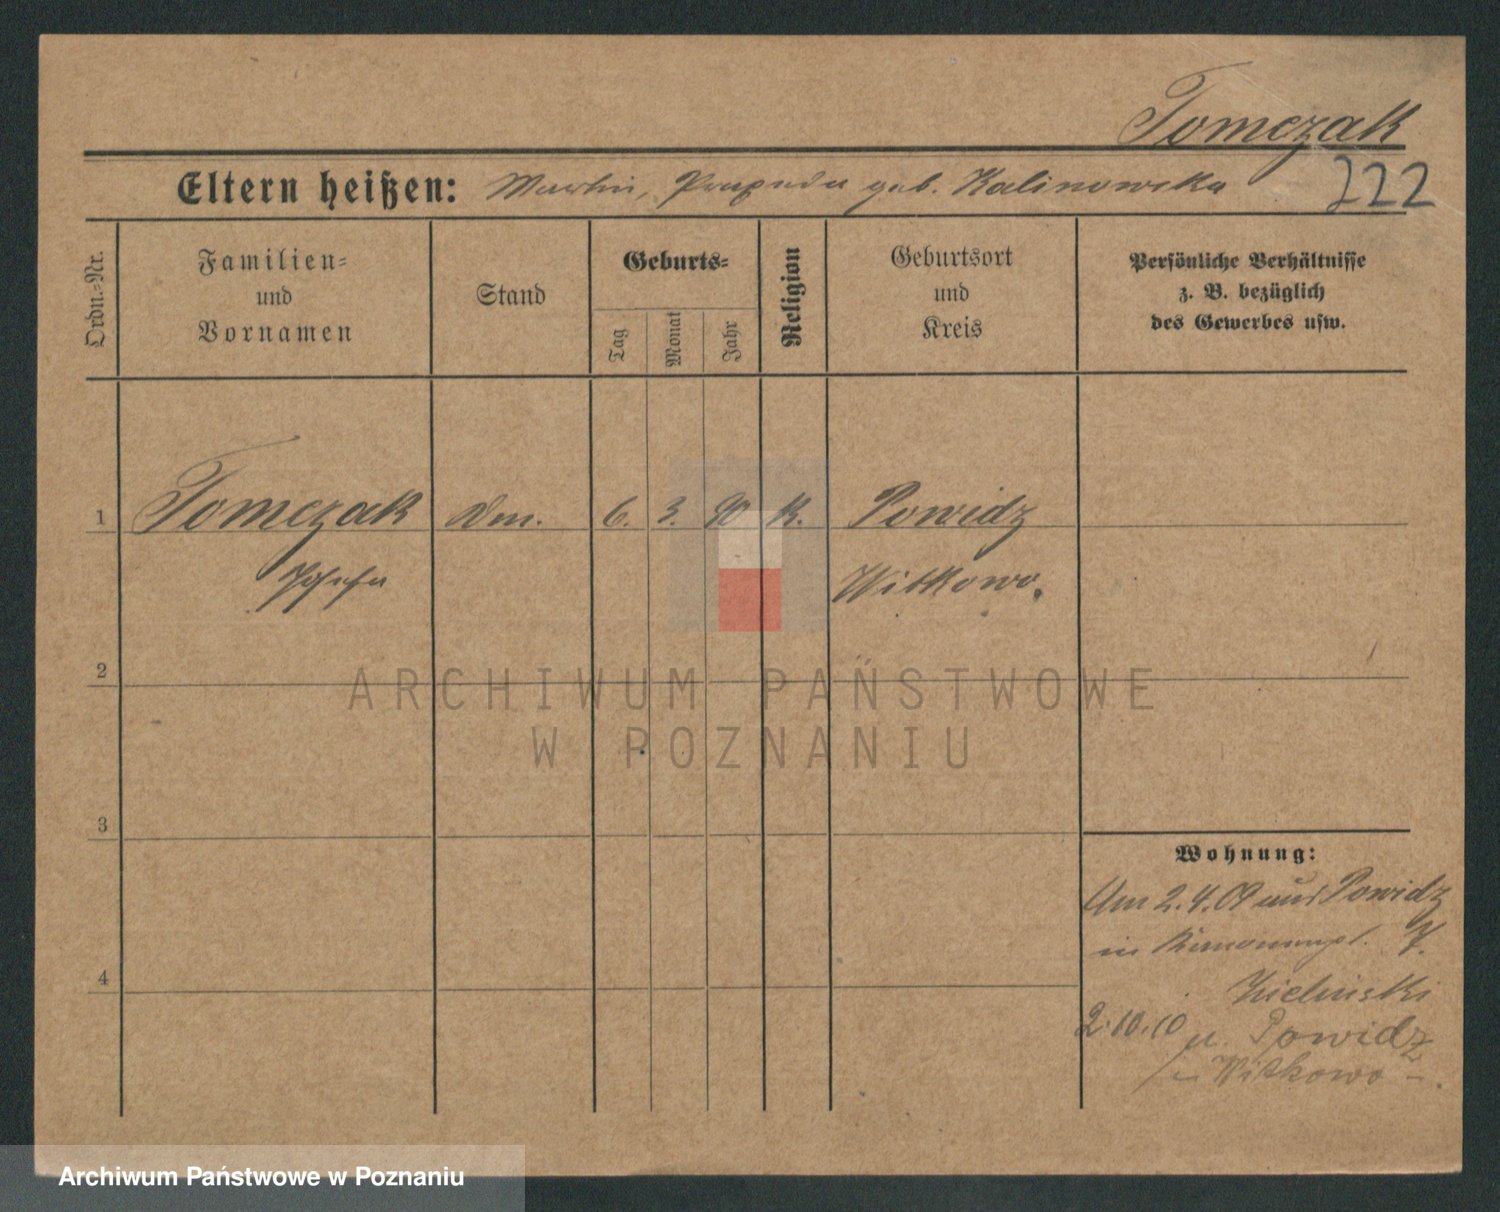 Tomczak
Eltern heißen: Martin, Praxeda geb. Kalinowska
222
Ordn.-Nr.
Familien-
und
Vornamen
Stand
Geburts-
Tag
Monat
Jahr
Religion
Geburtsort
und
Kreis
Persönliche Verhältnisse
z. B. bezüglich
des Gewerbes usw.
1 Tomczak 6. 3. 90 k. Powidz
Josefa Witkowo.
2
3
4
Wohnung:
Am 2.4.09 aus Powidz
in 7.
Zielinski
2.10.10 n. Powidz
Witkowo
ARCHIWUM PAŃSTWOWE
W POZNANIU
Archiwum Państwowe w Poznaniu